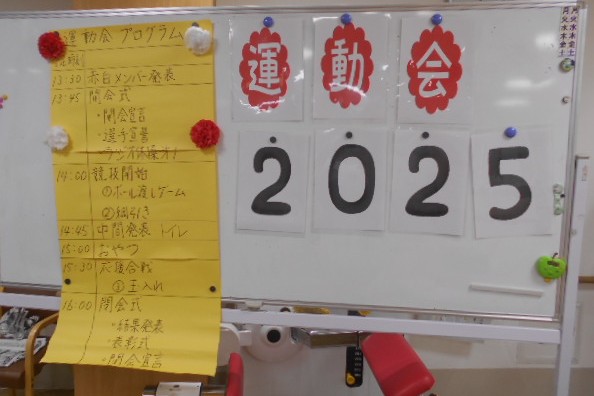 運動会 プログラム
時刻
13:30 赤白メンバー発表
13:45 開会式
・開会宣言
・選手宣誓
・ラジオ体操オ1
14:00 競技開始
①ボール渡しゲーム
②綱引き
14:45 中間発表 トイレ
15:00 おやつ
15:30 応援合戦
③玉入れ
16:00 閉会式
・結果発表
・表彰式
・閉会宣言
運動会
2025
月火水木金土
月火水木金土